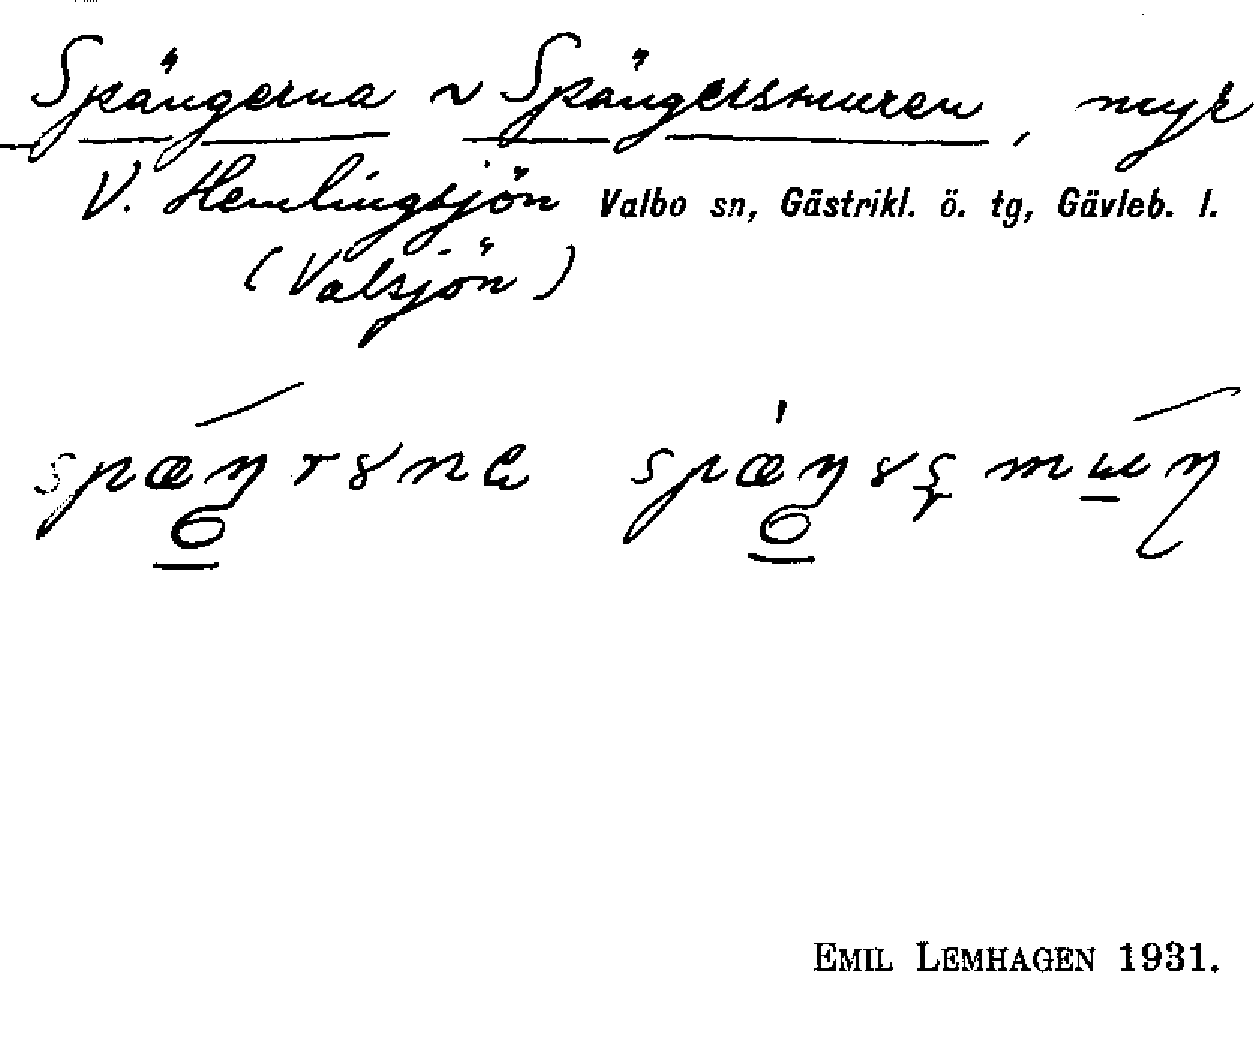 Spängerna ~ Spängersmuren, myr
V. Hemlingsjön Valbo sn, Gästrikl. ö. tg, Gävleb. l.
(Valsjön)
EMIL LEMHAGEN 1931.